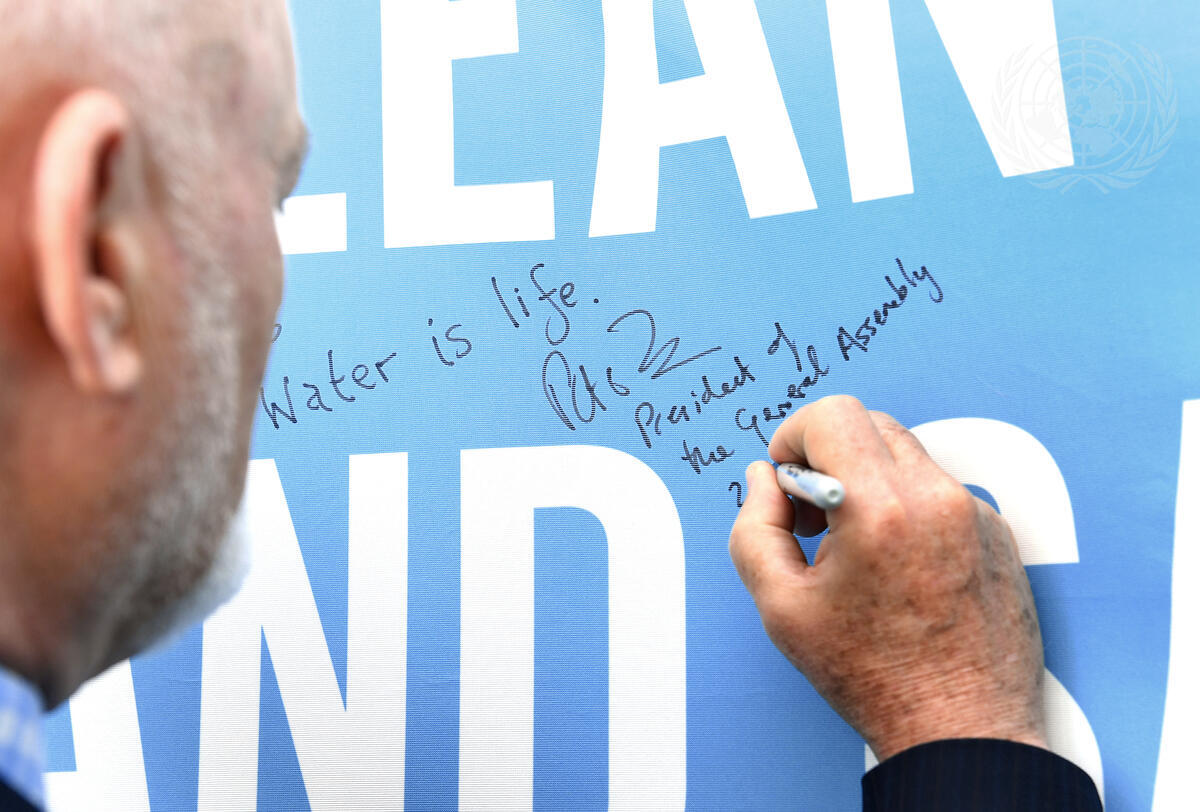 LEAN
Water is life.
President of
the General Assembly
2
AND SA